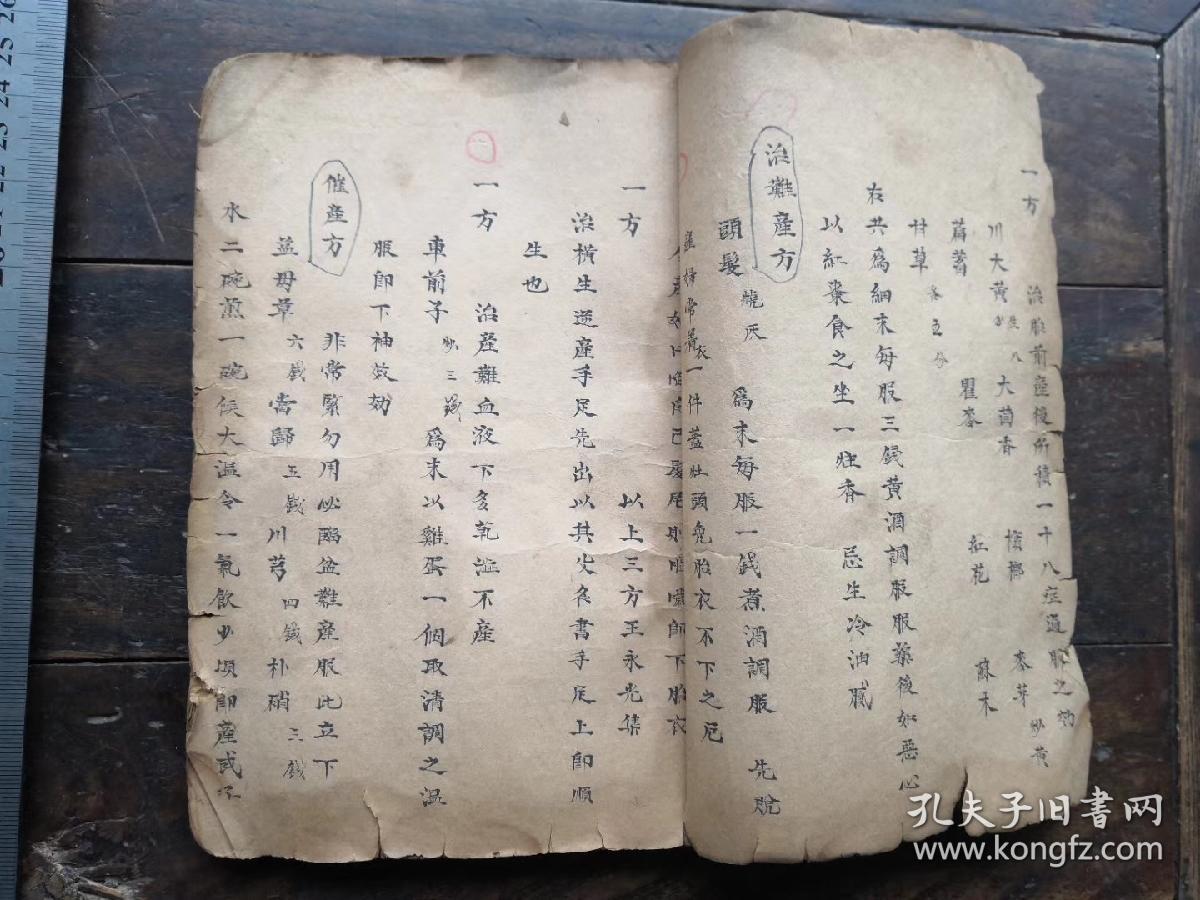 一方 治胎前産後所積一十八症通服之効
川大黃 大茴香 檳榔 麥芽 炒黃
萹蓄 瞿麥 紅花 蘇木
甘草 各五分
右共爲細末每服三錢黃酒調服服藥後如惡心
以紅棗食之坐一炷香 忌生冷油膩
治難産方
頭髮 燒灰 爲末每服一錢煮酒調服 先脫
産婦常着衣一件蓋灶頭免胎衣不下之厄
一方 以上三方王永光集
治橫生逆産手足先出以其父名書手足上即順
生也
一方 治産難血液下多乾澁不産
車前子 炒三錢 爲末以雞蛋一個取清調之温
服即下神效効
催産方 非常緊勿用必臨盆難産服此立下
益母草 六錢 當歸 五錢 川芎 四錢 朴硝 三錢
水二碗煎一碗候大温令一氣飲少頃即産或不
孔夫子旧书网
www.kongfz.com